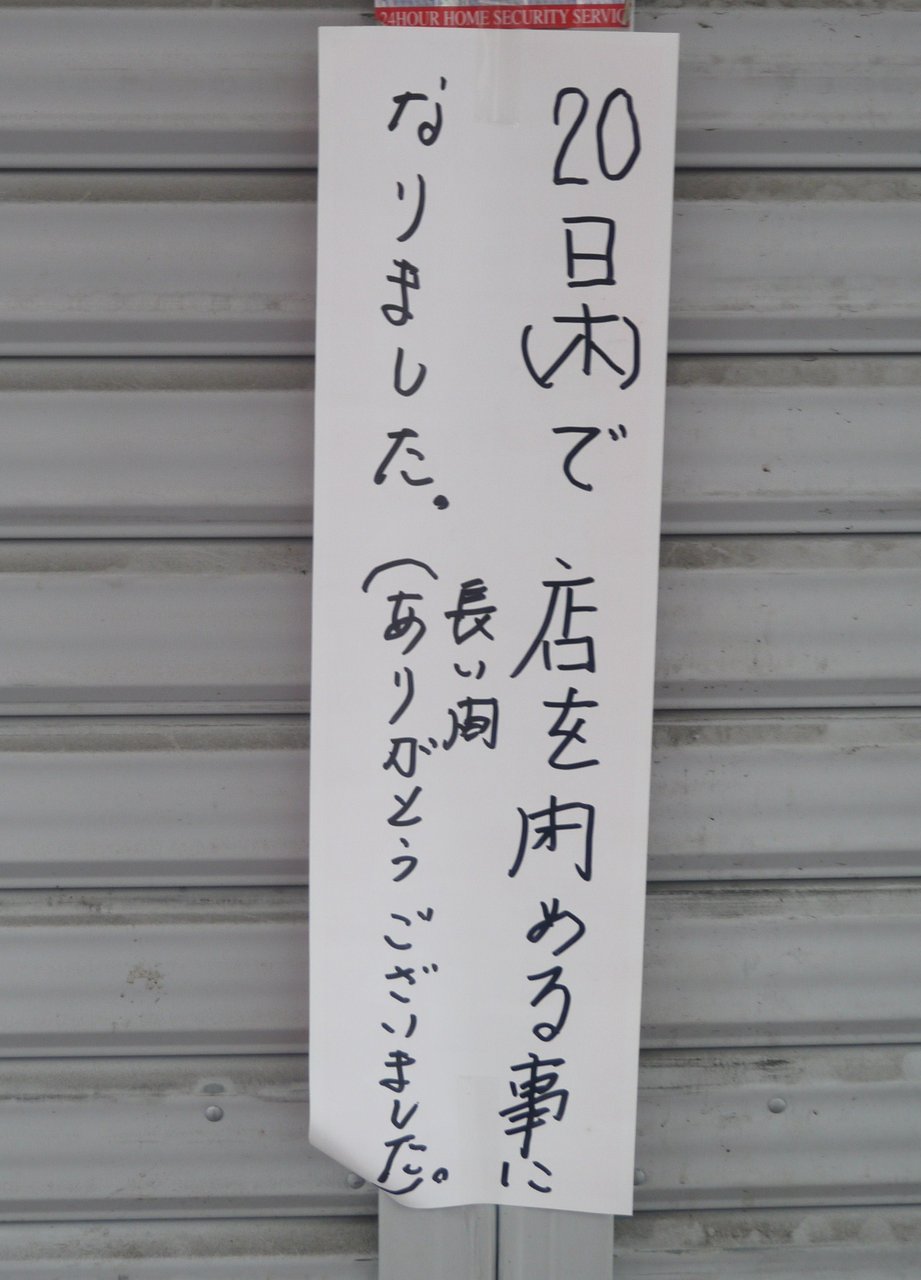 24HOUR HOME SECURITY SERVIC
20日(木)で店を閉める事に
なりました。
長い間
(ありがとうございました。)